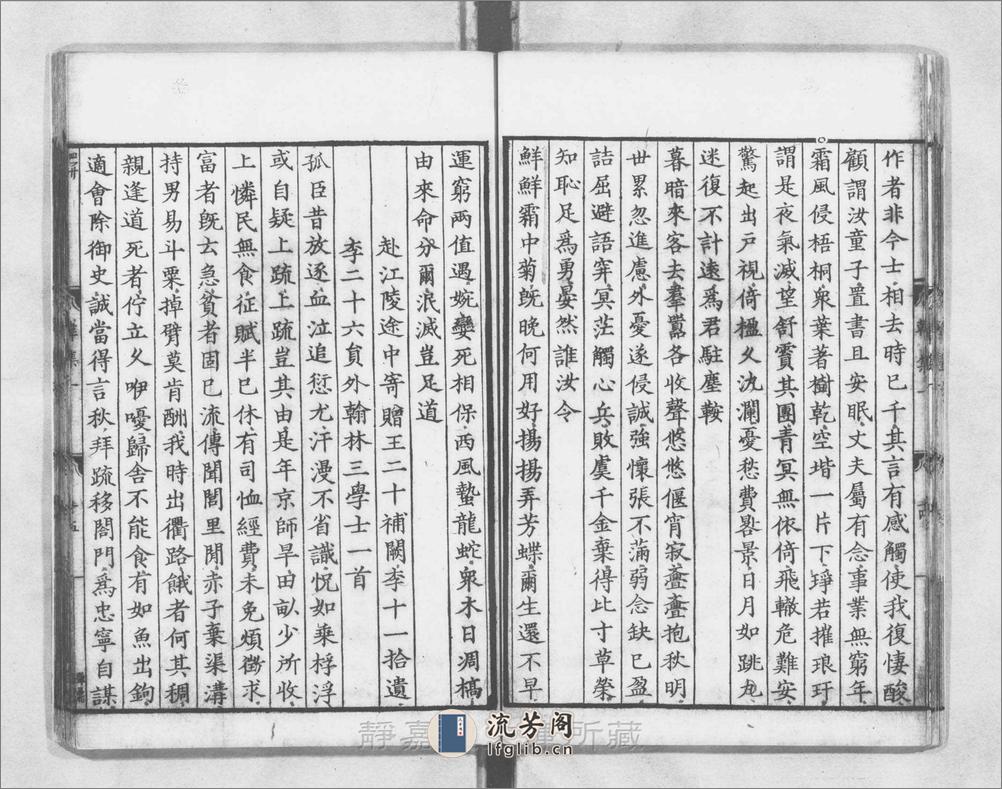 作者非今士相去時已千其言有感觸使我復悽酸
顧謂汝童子置書且安眠丈夫屬有念事業無窮年
霜風侵梧桐衆葉著樹乾空堦一片下琤若摧琅玕
謂是夜氣滅望舒霣其團青冥無依倚飛轍危難安
驚起出戶視倚楹久汍瀾憂愁費晷景日月如跳丸
迷復不計遠為君駐塵鞍
暮暗來客去羣囂各收聲悠悠偃宵寂亹亹抱秋明
世累忽進慮外憂遂侵誠強懷張不滿弱念缺已盈
詰屈避語穽冥茫觸心兵敗虞千金棄得比寸草榮
知恥足為勇晏然誰汝令
鮮鮮霜中菊既晚何用好揚揚弄芳蝶爾生還不早
運窮兩值遇婉孌死相保西風蟄龍蛇衆木日凋槁
由來命分爾泯滅豈足道
赴江陵途中寄贈王二十補闕李十一拾遺
李二十六員外翰林三學士一首
孤臣昔放逐血泣追愆尤汗漫不省識怳如乗桴浮
或自疑上疏上疏豈其由是年京師旱田畝少所收
上憐民無食征賦半已休有司恤經費未免煩徵求
富者既云急貧者固已流傳聞閭里閒赤子棄渠溝
持男易斗粟掉臂莫肯酬我時出衢路餓者何其稠
親逢道死者佇立久咿嚘歸舍不能食有如魚出鉤
適會除御史誠當得言秋拜疏移閤門為忠寧自謀
流芳阁
lfglib.cn